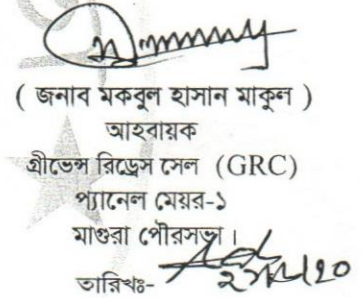 ( জনাব মকবুল হাসান মাকুল )
আহবায়ক
গ্রীভেন্স রিড্রেস সেল (GRC)
প্যানেল মেয়র-১
মাগুরা পৌরসভা।
তারিখঃ-